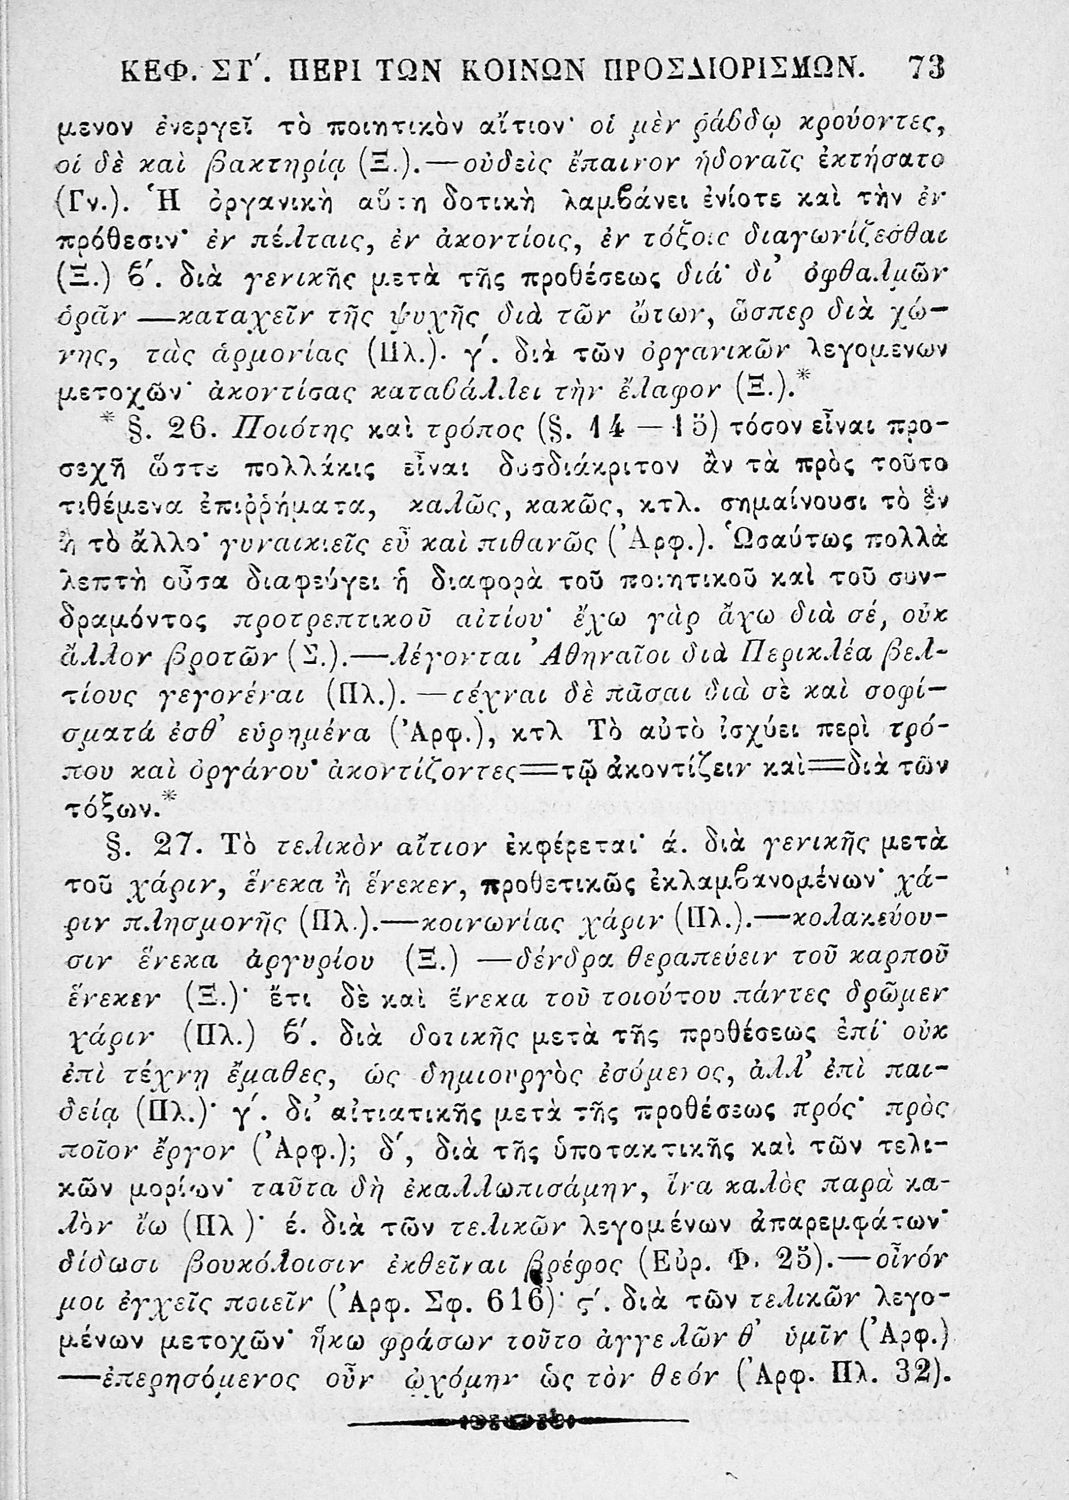 ΚΕΦ. ΣΤ΄. ΠΕΡΙ ΤΩΝ ΚΟΙΝΩΝ ΠΡΟΣΔΙΟΡΙΣΜΩΝ. 73
μενον ἐνεργεῖ τὸ ποιητικὸν αἴτιον· οἱ μὲν ῥάβδῳ κρούοντες,
οἱ δὲ καὶ βακτηρίᾳ (Ξ.).—οὐδεὶς ἔπαινον ἡδοναῖς ἐκτήσατο
(Γν.). Ἡ ὀργανικὴ αὕτη δοτικὴ λαμβάνει ἐνίοτε καὶ τὴν ἐν
πρόθεσιν· ἐν πέλταις, ἐν ἀκοντίοις, ἐν τόξοις διαγωνίζεσθαι
(Ξ.) β΄. διὰ γενικῆς μετὰ τῆς προθέσεως διά· δι᾽ ὀφθαλμῶν
ὁρᾶν —καταχεῖν τῆς ψυχῆς διὰ τῶν ὤτων, ὥσπερ διὰ χώ-
νης, τὰς ἁρμονίας (Πλ.)· γ΄. διὰ τῶν ὀργανικῶν λεγομενων
μετοχῶν· ἀκοντίσας καταβάλλει τὴν ἔλαφον (Ξ.).*
* §. 26. Ποιότης καὶ τρόπος (§. 14 — 15) τόσον εἶναι προ-
σεχῆ ὥστε πολλάκις εἶναι δυσδιάκριτον ἂν τὰ πρὸς τοῦτο
τιθέμενα ἐπιῤῥήματα, καλῶς, κακῶς, κτλ. σημαίνουσι τὸ ἓν
ἢ τὸ ἄλλο· γυναικιεῖς εὖ καὶ πιθανῶς (Ἀρφ.). Ὡσαύτως πολλὰ
λεπτὴ οὖσα διαφεύγει ἡ διαφορὰ τοῦ ποιητικοῦ καὶ τοῦ συν-
δραμόντος προτρεπτικοῦ αἰτίου· ἔχω γὰρ ἄχω διὰ σέ, οὐκ
ἄλλον βροτῶν (Σ.).—λέγονται Ἀθηναῖοι διὰ Περικλέα βελ-
τίους γεγονέναι (Πλ.). —τέχναι δὲ πᾶσαι διὰ σὲ καὶ σοφί-
σματά ἐσθ᾽ εὑρημένα (Ἀρφ.), κτλ Τὸ αὐτὸ ἰσχύει περὶ τρό-
που καὶ ὀργάνου· ἀκοντίζοντες=τῷ ἀκοντίζειν καὶ=διὰ τῶν
τόξων.*
§. 27. Τὸ τελικὸν αἴτιον ἐκφέρεται· ά. διὰ γενικῆς μετὰ
τοῦ χάριν, ἕνεκα ἢ ἕνεκεν, προθετικῶς ἐκλαμβανομένων· χά-
ριν πλησμονῆς (Πλ.).—κοινωνίας χάριν (Πλ.).—κολακεύου-
σιν ἕνεκα ἀργυρίου (Ξ.) —δένδρα θεραπεύειν τοῦ καρποῦ
ἕνεκεν (Ξ.)· ἔτι δὲ καὶ ἕνεκα τοῦ τοιούτου πάντες δρῶμεν
χάριν (Πλ.) β΄. διὰ δοτικῆς μετὰ τῆς προθέσεως ἐπί· οὐκ
ἐπὶ τέχνῃ ἔμαθες, ὡς δημιουργὸς ἐσόμενος, ἀλλ᾽ ἐπὶ παι-
δείᾳ (Πλ.)· γ΄. δι᾽ αἰτιατικῆς μετὰ τῆς προθέσεως πρός· πρὸς
ποῖον ἔργον (Ἀρφ.); δ΄, διὰ τῆς ὑποτακτικῆς καὶ τῶν τελι-
κῶν μορίων· ταῦτα δὴ ἐκαλλωπισάμην, ἵνα καλὸς παρὰ κα-
λὸν ἴω (Πλ )· έ. διὰ τῶν τελικῶν λεγομένων ἀπαρεμφάτων·
δίδωσι βουκόλοισιν ἐκθεῖναι βρέφος (Εὐρ. Φ. 25).—οἶνόν
μοι ἐγχεῖς ποιεῖν (Ἀρφ. Σφ. 616)· ς΄. διὰ τῶν τελικῶν λεγο-
μένων μετοχῶν· ἥκω φράσων τοῦτο ἀγγελῶν θ᾽ ὑμῖν (Ἀρφ.)
—ἐπερησόμενος οὖν ᾠχόμην ὡς τὸν θεόν (Ἀρφ. Πλ. 32).